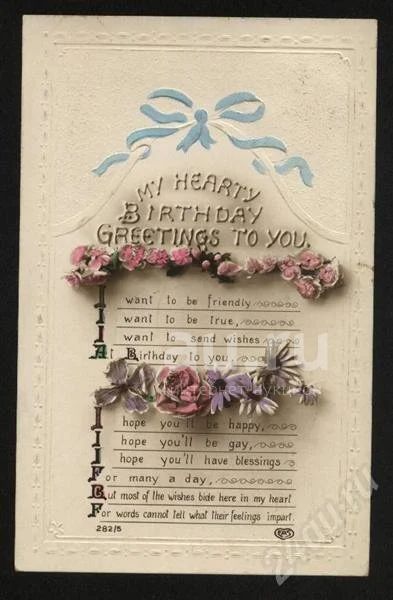 MY HEARTY
BIRTHDAY
GREETINGS TO YOU.
I want to be friendly
I want to be true,
I want to send wishes
At Birthday to you.
I hope you'll be happy,
I hope you'll be gay,
I hope you'll have blessings
For many a day,
But most of the wishes bide here in my heart
For words cannot tell what their feelings impart.
282/5
24au.ru